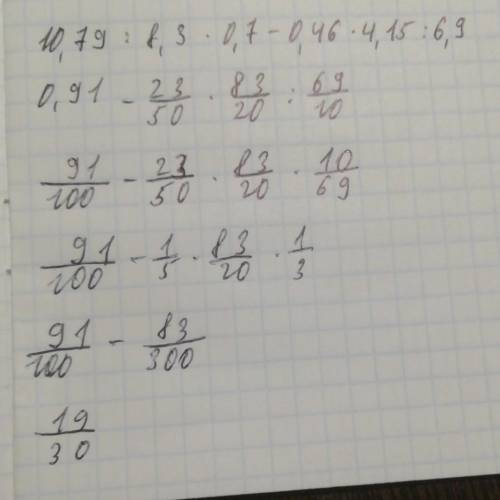 10,79 : 8,3 · 0,7 - 0,46 · 4,15 : 6,9
0,91 - 23/50 · 83/20 : 69/10
91/100 - 23/50 · 83/20 · 10/69
91/100 - 1/5 · 83/20 · 1/3
91/100 - 83/300
19/30